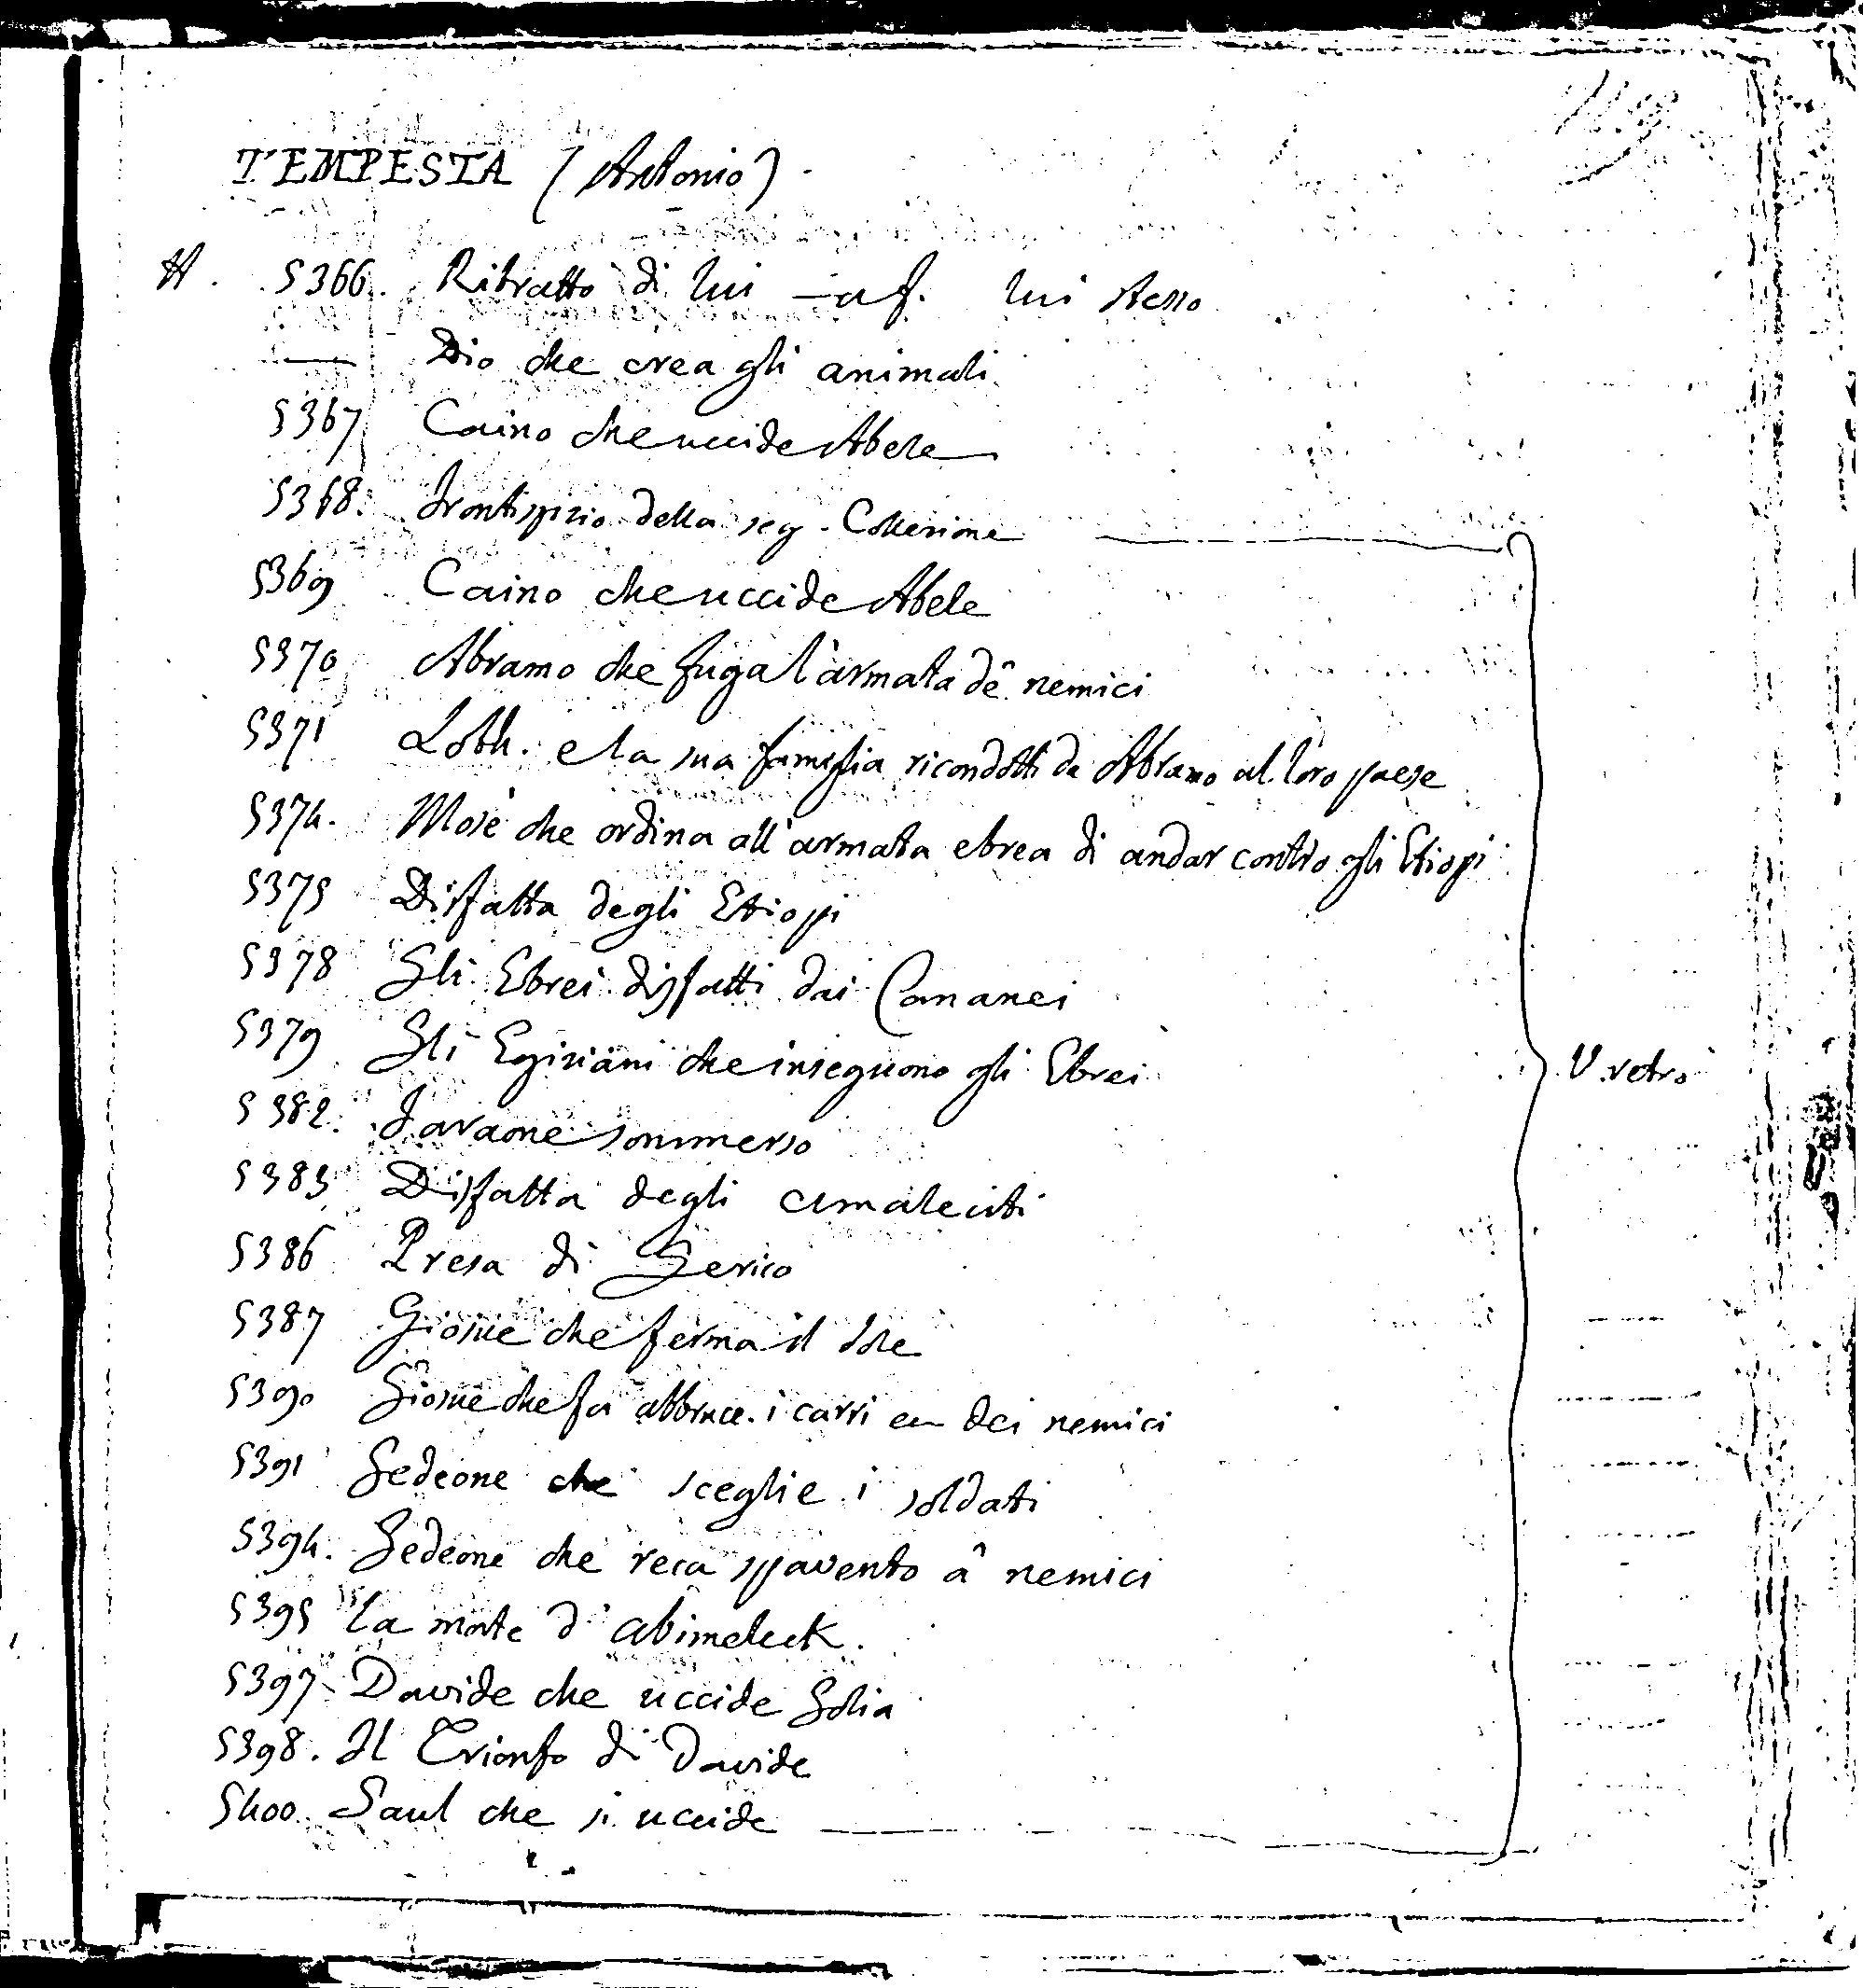 TEMPESTA (Antonio)
H. 5366. Ritratto di lui — a f. lui stesso
— Dio che crea gli animali
5367 Caino che uccide Abele
5368. Frontispizio della seg. Collezione
5369 Caino che uccide Abele
5370 Abramo che fuga l'armata dê nemici
5371 Loth. e la sua famiglia ricondotti da Abramo al loro paese
5374. Mosè che ordina all'armata ebrea di andar contro gli Etiopi
5375 Disfatta degli Etiopi
5378 Gli Ebrei disfatti dai Cananei
5379 Gli Egiziani che inseguono gli Ebrei
V. retro
5382. Faraone sommerso
5383 Disfatta degli amaleciti
5386 Presa di Gerico
5387 Giosuè che ferma il sole
5390 Giosuè che fa abbruc. i carri ec dei nemici
5391 Gedeone che sceglie i soldati
5394. Gedeone che reca spavento â nemici
5395 La morte d'abimeleck.
5397 Davide che uccide Golia
5398. Il Trionfo di Davide
5400. Saul che si uccide